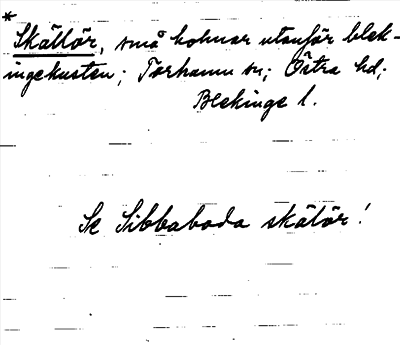 *
Skällör, små holmar utanför blek-
ingekusten; Torhamn sn; Östra hd;
Blekinge l.
Se Sibbaboda skälör!